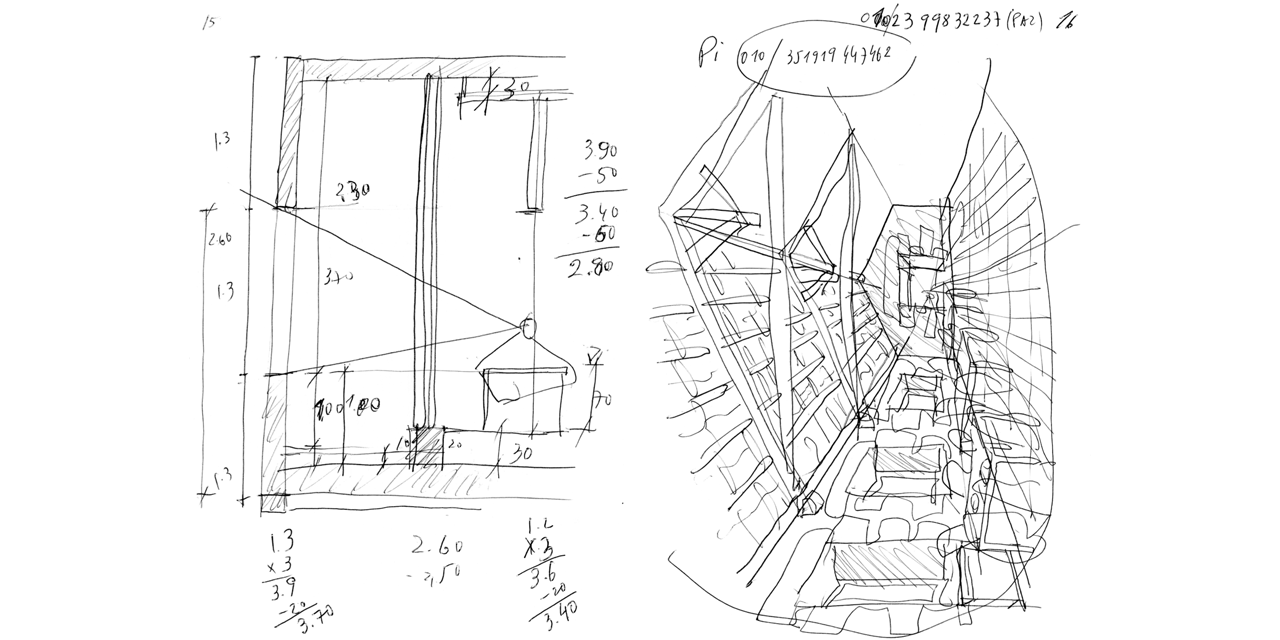 15
010/23 99832237 (PAZ) 16
Pi 010/ 351919 447462
30
1.3
3.90
-50
3.40
-60
2.80
2,30
2.60
1.3
3.70
1.00
70
10
20
30
1.3
1.3
x 3
3.9
-20
3.70
2.60
-,50
1.2
x.3
3.6
-20
3.40